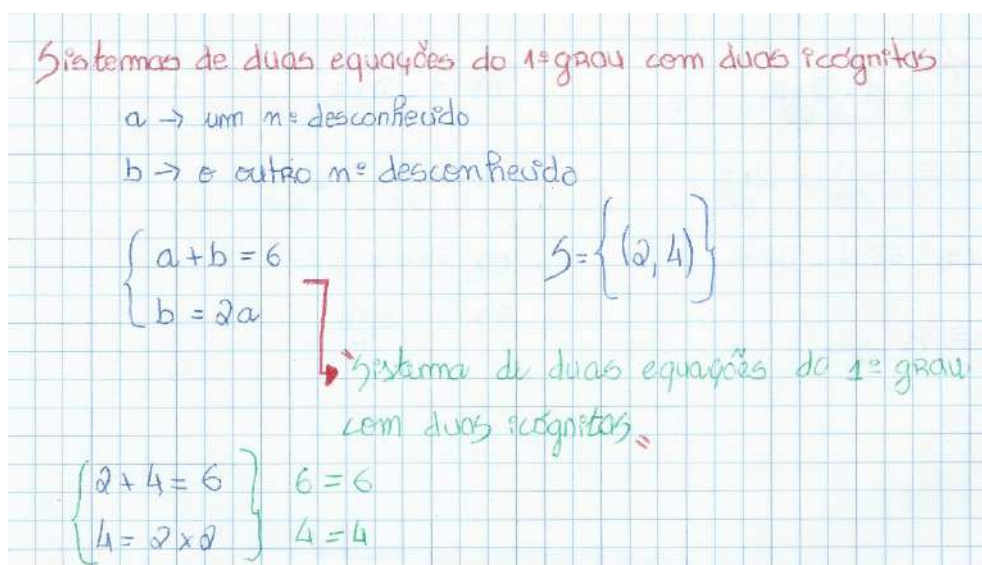 Sistemas de duas equações do 1º grau com duas icógnitas
a → um nº desconhecido
b → o outro nº desconhecido
a + b = 6
b = 2a
S = {(2, 4)}
"Sistema de duas equações do 1º grau
com duas icógnitas"
2 + 4 = 6 6 = 6
4 = 2 x 2 4 = 4